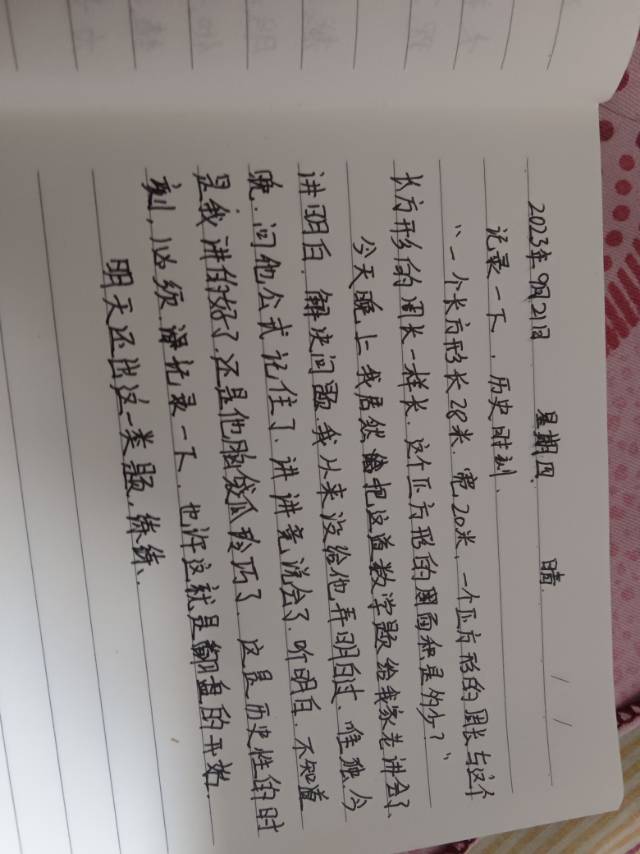 2023年9月21日 星期四. 晴.
记录一下，历史胜利.
“一个长方形长28米，宽20米，一个正方形的周长与这个
长方形的周长一样长，这个正方形的面积是多少？”
今天晚上我居然把这道数学题给我家老讲会了、
讲明白，解决问题.我从来没给他弄明白过、唯独今
晚.问他公式记住了、讲讲竟说会了、听明白、不知道
是我讲的好了还是他脑袋瓜玲巧了 这是历史性的时
刻，必须记录一下、也许这就是翻盘的开始.
明天还出这一类题，练练、